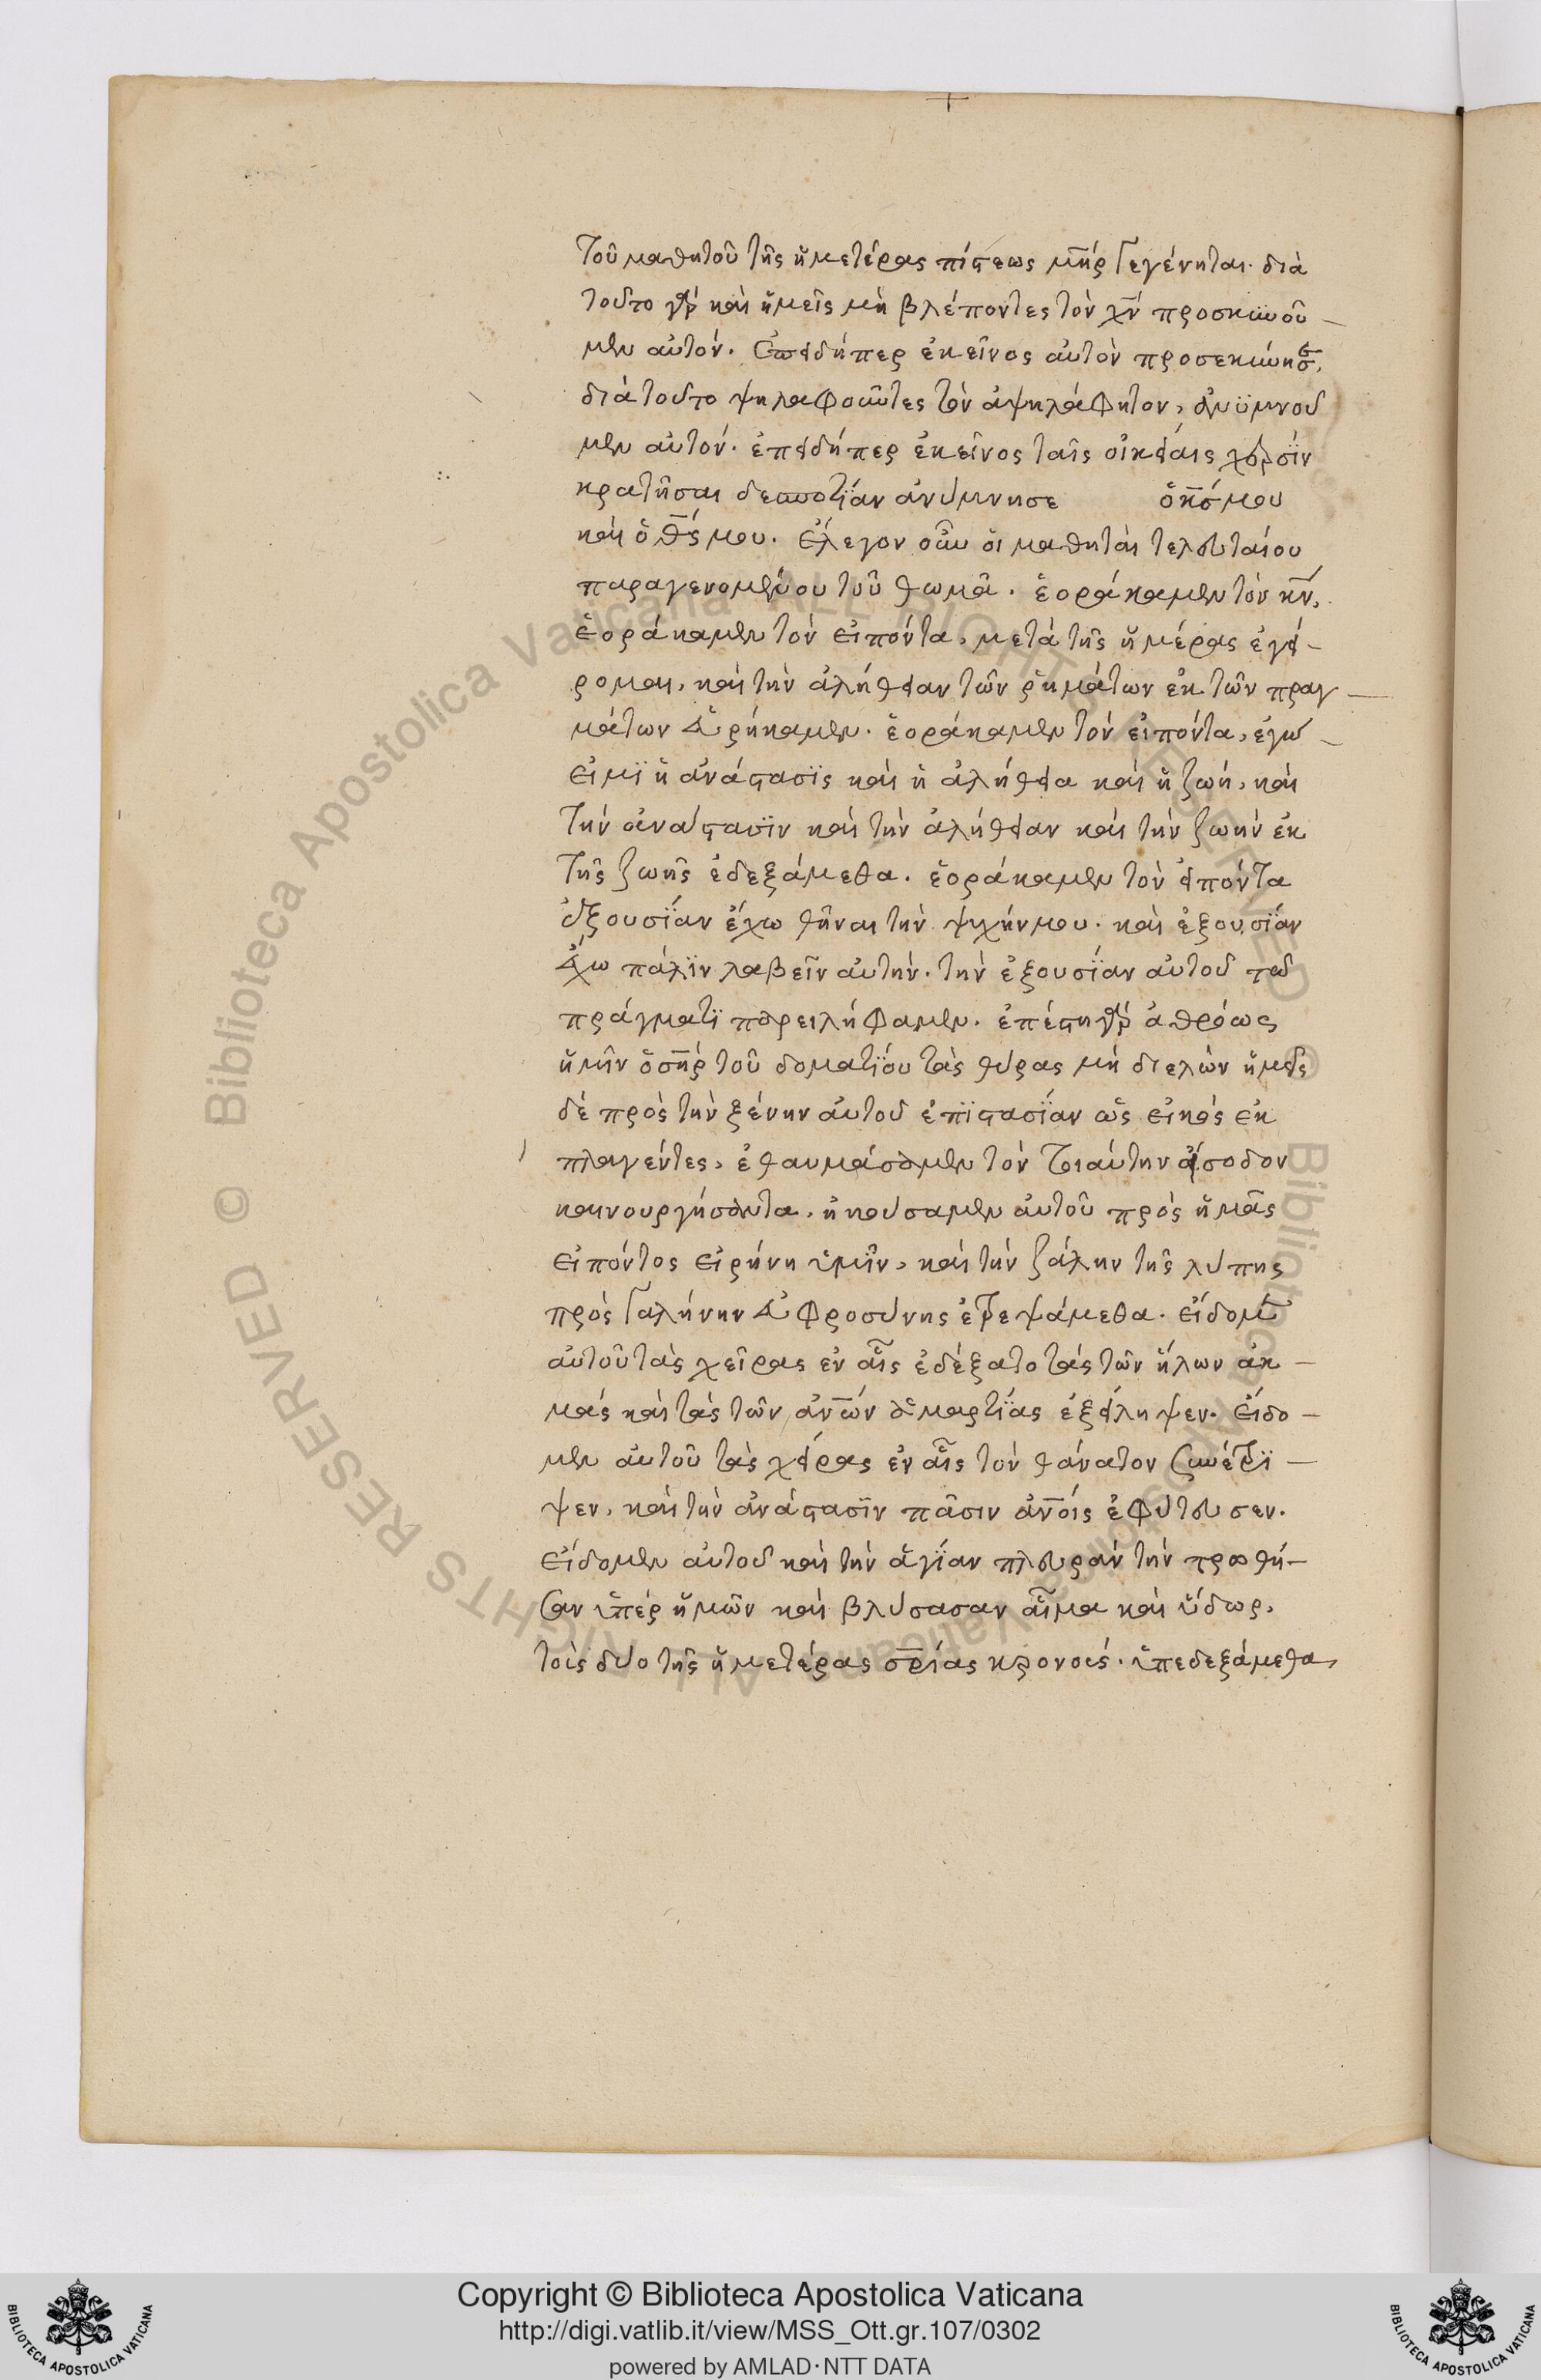 τοῦ μαθητοῦ τῆς ἡμετέρας πίστεως μ̅ηρ γεγένηται. διὰ
τοῦτο γὰρ καὶ ἡμεῖς μὴ βλέποντες τὸν χ̅ν προσκυνοῦ –
μεν αὐτόν. ἐπειδήπερ ἐκεῖνος αὐτὸν προσεκύνησε,
διὰ τοῦτο ψηλαφοῦντες τὸν ἀψηλάφητον, ἀνϋμνοῦ
μεν αὐτόν. ἐπειδήπερ ἐκεῖνος ταῖς οἰκείαις χερσῒν
κρατῆσαι δεσποτΐαν ἀνύμνησε ὁ κ̅ς μου
καὶ ὁ θ̅ς μου. ἔλεγον οὖν οἱ μαθηταὶ τελευταίου
παραγενομένου τοῦ θωμᾶ. ἑοράκαμεν τὸν κ̅ν,
ἑοράκαμεν τὸν εἰπόντα, μετὰ τῆς ἡμέρας ἐγεί –
ρομαι, καὶ τὴν ἀλήθειαν τῶν ῥημάτων ἐκ τῶν πραγ –
μάτων εὑρήκαμεν. ἑοράκαμεν τὸν εἰπόντα, ἐγώ –
εἰμϊ ἡ ἀνάστασϊς καὶ ἡ ἀλήθεια καὶ ἡ ζωή, καὶ
τὴν ἀνάστασϊν καὶ τὴν ἀλήθειαν καὶ τὴν ζωὴν ἐκ
τῆς ζωῆς ἐδεξάμεθα. ἑοράκαμεν τὸν εἰπόντα
ἐξουσΐαν ἔχω θῆναι τὴν ψυχήν μου. καὶ ἐξουσΐαν
ἔχω πάλϊν λαβεῖν αὐτήν. τὴν ἐξουσΐαν αὐτοῦ τῶ
πράγματϊ παρειλήφαμεν. ἐπέστη γὰρ ἀθρόως
ἡμῖν ὁ σ̅ηρ τοῦ δοματΐου τὰς θύρας μὴ διελὼν ἡμεῖς
δὲ πρὸς τὴν ξένην αὐτοῦ ἐπϊστασΐαν ὡς εἰκὸς ἐκ
πλαγέντες, ἐθαυμάσαμεν τὸν τοιαύτην εἴσοδον
καινουργήσαντα, ἠκούσαμεν αὐτοῦ πρὸς ἡμᾶς
εἰπόντος εἰρήνη ὑμῖν, καὶ τὴν ζάλην τῆς λύπης
πρὸς γαλήνην εὐφροσύνης ἐτρεψάμεθα. εἴδομεν
αὐτοῦ τὰς χεῖρας ἐν αἷς ἐδέξατο τὰς τῶν ἥλων ἀκ –
μὰς καὶ τὰς τῶν ἀν̅ων ἁμαρτΐας ἐξείληψεν. εἴδο –
μεν αὐτοῦ τὰς χεῖρας ἐν αἷς τὸν θάνατον συνέτρϊ –
ψεν, καὶ τὴν ἀνάστασϊν πᾶσιν ἀν̅οις ἐφύτευσεν.
εἴδομεν αὐτοῦ καὶ τὴν ἁγΐαν πλευρὰν τὴν τρωθῆ –
σαν ὑπὲρ ἡμῶν καὶ βλύσασαν αἷμα καὶ ὕδωρ,
τοὶς δύο τῆς ἡμετέρας σ̅ρίας κρουνοὺς. ὑπεδεξάμεθα,
© Biblioteca Apostolica Vaticana ALL RIGHTS RESERVED
© Biblioteca Apostolica Vaticana ALL RIGHTS RESERVED
Copyright © Biblioteca Apostolica Vaticana
http://digi.vatlib.it/view/MSS_Ott.gr.107/0302
powered by AMLAD·NTT DATA
BIBLIOTECA APOSTOLICA VATICANA
BIBLIOTECA APOSTOLICA VATICANA